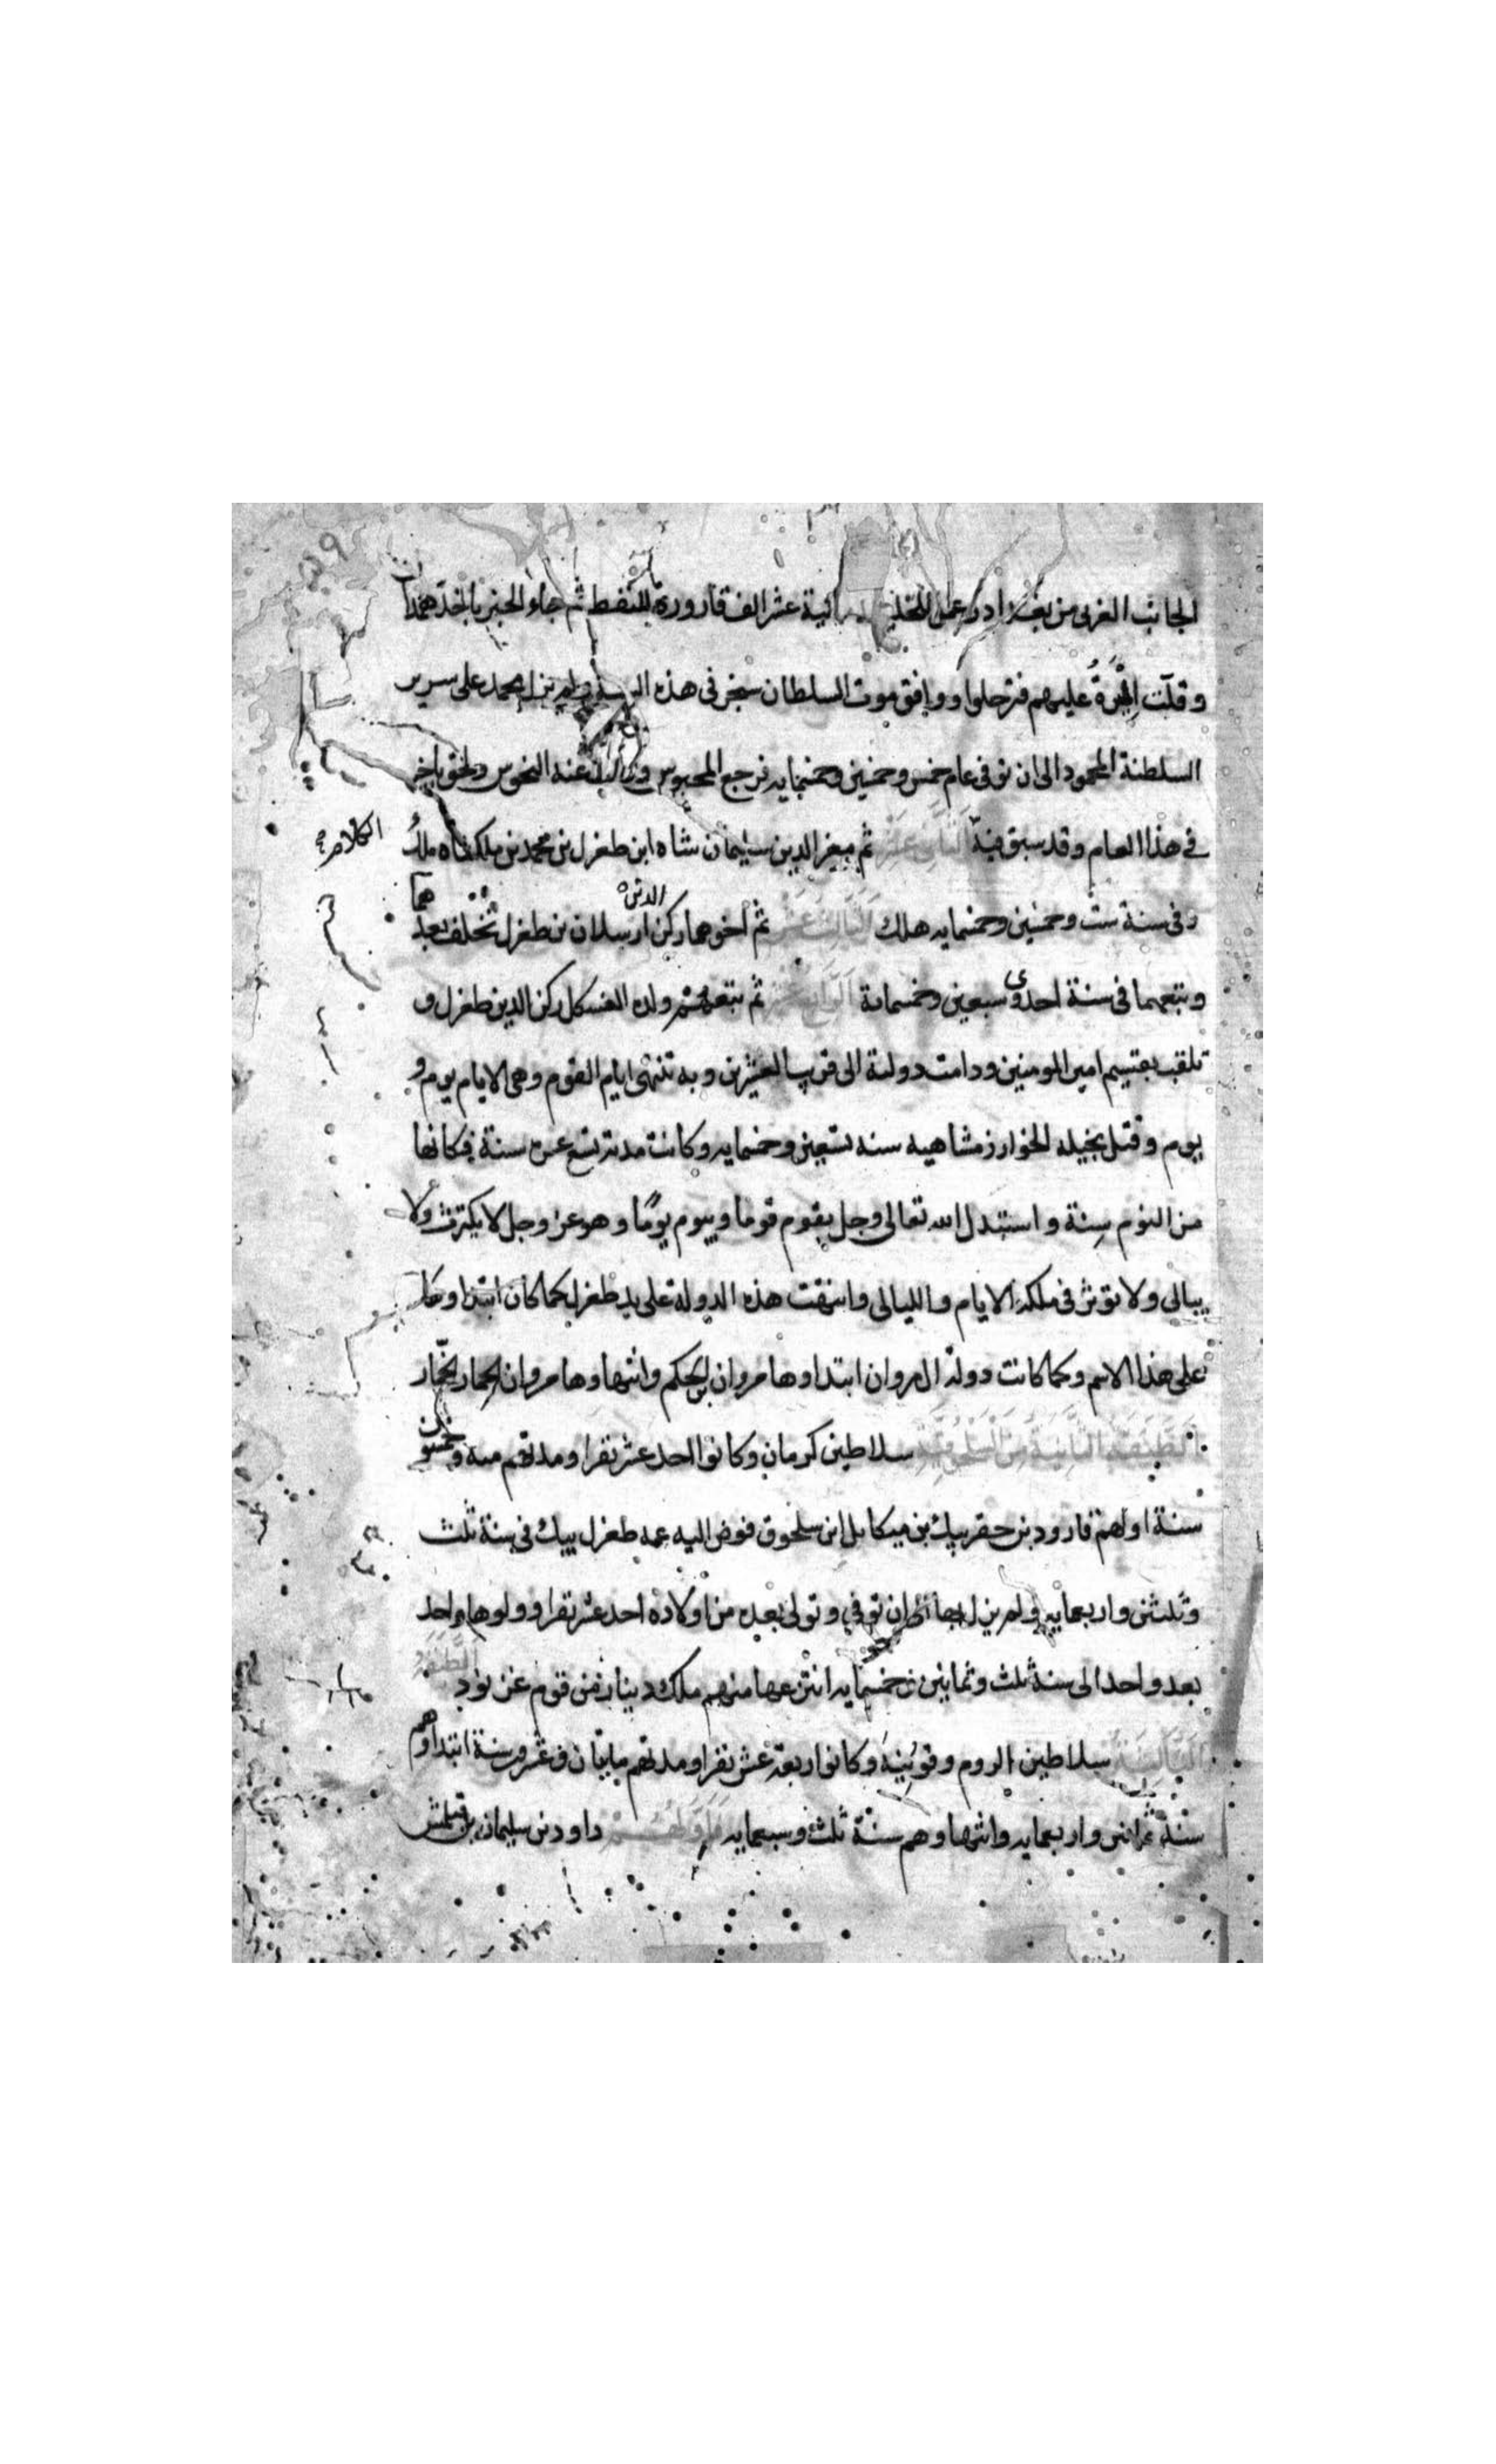 الجانب الغربى من بغداد وعمل الخليفة ثمانية عشر الف قارورة للنفط ثم جاء الخبر باخذ همدان
وقلت الميرة عليهم فترحلوا ووافق موت السلطان سنجر فى هذه السنة ولم يزل محمد على سرير
السلطنة المحمود الى ان توفى عام خمس وخمسين وخمسمايه فرجع المحبوس وزالت عنه النحوس ولحق باخيه
فى هذا العام وقد سبق فيه الكلام الثانى عشر ثم معز الدين سليمان شاه ابن طغرل بن محمد بن ملكشاه ملك
وفى سنة ست وخمسين وخمسمايه هلك الثالث عشر ثم اخوهما ركن الدين ارسلان بن طغرل تخلف بعدهما
وتبعهما فى سنة احدى وسبعين وخمسمائة الرابع عشر ثم تبعهم ولده ركن الدين طغرل و
تلقب بقسيم امير المومنين ودامت دولته الى قريب العشرين وبه تنتهى ايام القوم وهى الايام يوم و
يوم وقتل بخيله الخوارزمشاهيه سنه تسعين وخمسمايه وكانت مدته تسع عشرة سنة فكانها
من النوم سنة واستبدل الله تعالى وجل بقوم قوما وبيوم يوما وهو عز وجل لا يكترث ولا
يبالى ولا تؤثر فى ملكه الايام والليالى وانتهت هذه الدولة على يد طغرل كما كان ابتداوها
على هذا الاسم وكما كانت دولة ال مروان ابتداوها مروان بن الحكم وانتهاوها مروان الحمار
الطبقة الثانية من السلجوقية سلاطين كرمان وكانوا احد عشر نفرا ومدتهم مية وخمسون
سنة اولهم قارود بن جقر بيك بن ميكايل ابن سلجوق فوض اليه عمه طغرل بيك فى سنة ثلث
وثلثين واربعمايه ولم يزل بها الى ان توفى وتولى بعده من اولاده احد عشر نفرا وولوها واحد
بعد واحد الى سنة ثلث وثمانين وخمسمايه انتزعها منهم ملك دينار من قوم غز الطبقة
الثالثة سلاطين الروم وقونيه وكانوا اربعة عشر نفرا ومدتهم مايتان وعشرون سنة ابتداوهم
سنة ثمانين واربعمايه وانتهاوهم سنة ثلث وسبعمايه فاولهم داود بن سليمان بن قتلمش